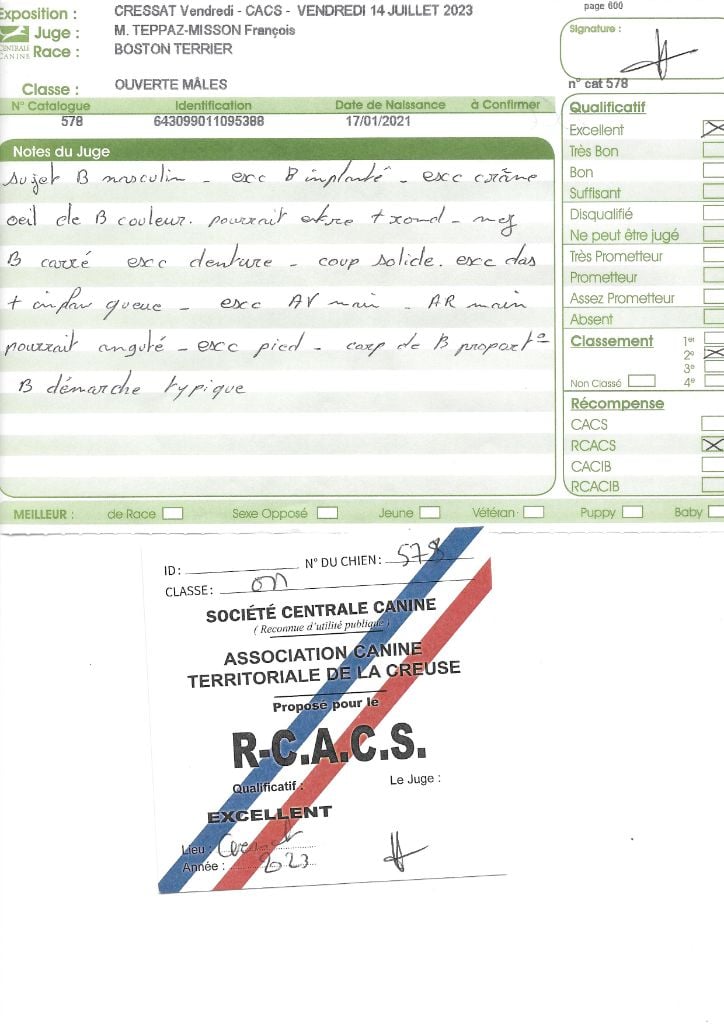 Exposition : CRESSAT Vendredi - CACS - VENDREDI 14 JUILLET 2023
page 600
Juge : M. TEPPAZ-MISSON François
CENTRALE CANINE
Race : BOSTON TERRIER
Signature :
Classe : OUVERTE MÂLES
n° cat 578
N° Catalogue Identification Date de Naissance à Confirmer
578 643099011095388 17/01/2021
Qualificatif
Excellent
Très Bon
Bon
Suffisant
Disqualifié
Ne peut être jugé
Très Prometteur
Prometteur
Assez Prometteur
Absent
Classement 1er
2e
3e
Non Classé 4e
Récompense
CACS
RCACS
CACIB
RCACIB
Notes du Juge
sujet B masculin - exc B implanté - exc crâne
oeil de B couleur. pourrait etre + rond - nez
B carré exc denture - coup solide. exc das
+ inplan queue - exc AV main - AR main
pourrait angulé - exc pied - corp de B proport°
B démarche typique
MEILLEUR : de Race Sexe Opposé Jeune Vétéran Puppy Baby
ID: N° DU CHIEN: 578
CLASSE: OM
SOCIÉTÉ CENTRALE CANINE
( Reconnue d'utilité publique )
ASSOCIATION CANINE
TERRITORIALE DE LA CREUSE
Proposé pour le
R-C.A.C.S.
Qualificatif : Le Juge :
EXCELLENT
Lieu : Cressat
Année : 2023